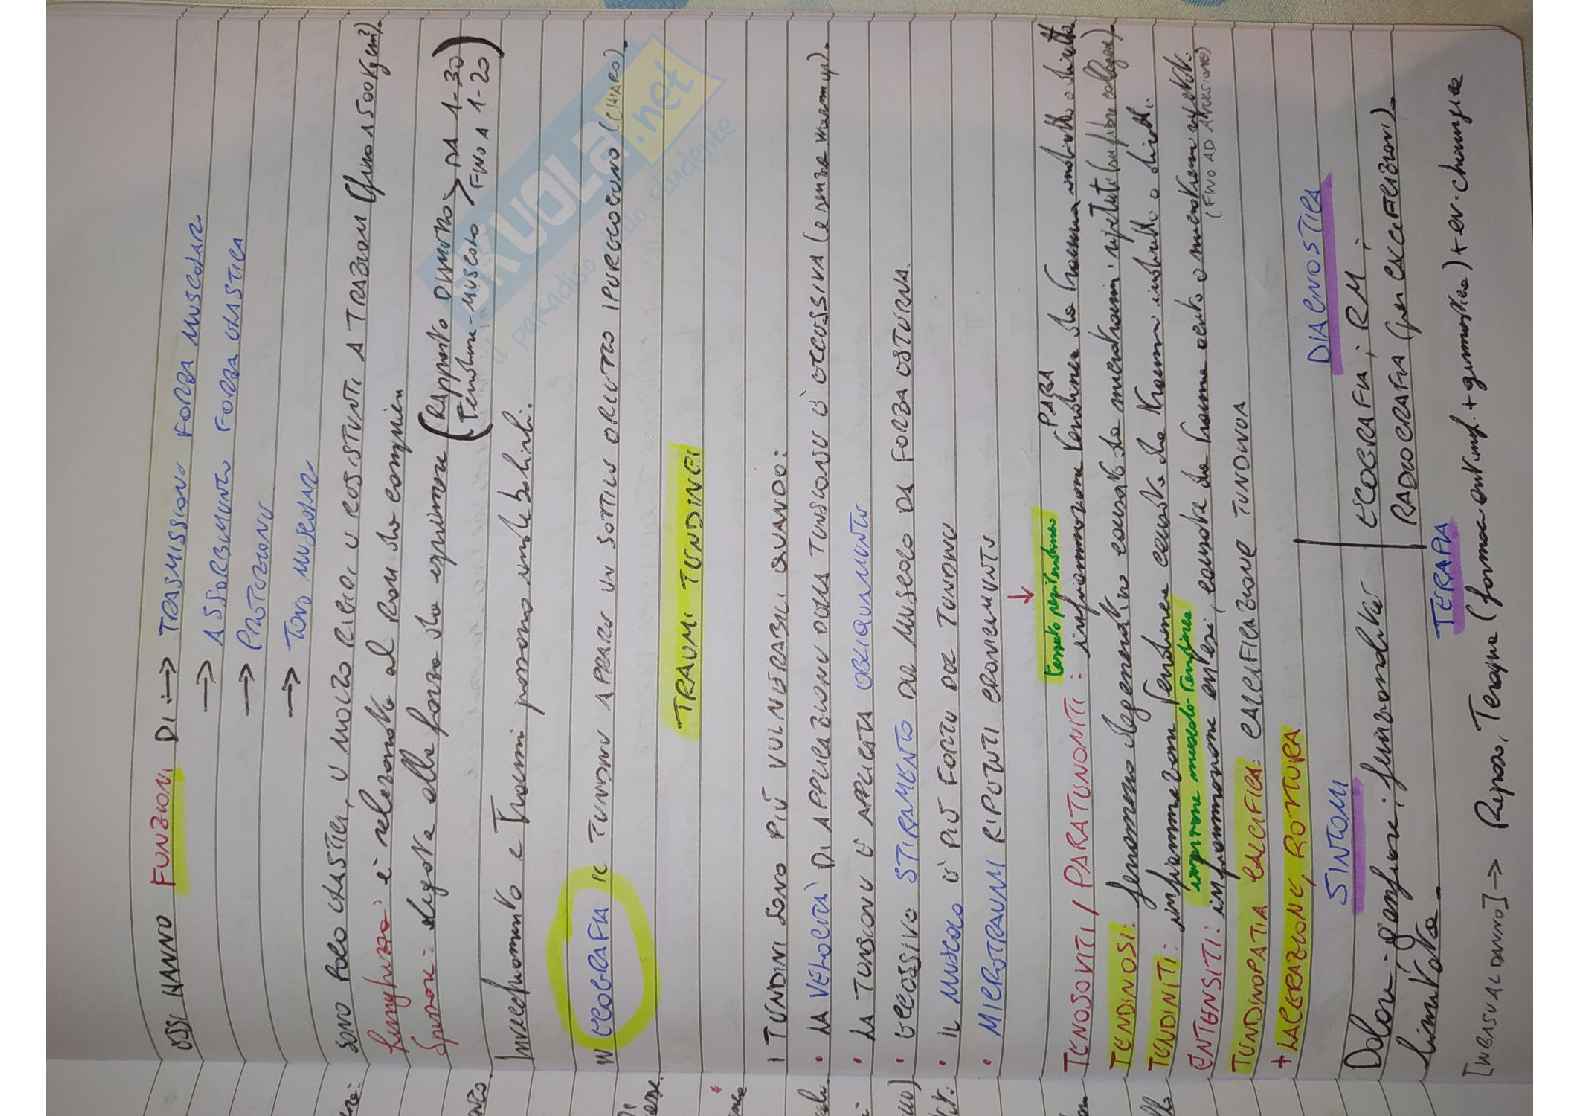 ESSI HANNO FUNZIONI DI: → TRASMISSIONE FORZA MUSCOLARE
→ ASSORBIMENTO FORZA ELASTICA
→ PROTEZIONE
→ TONO MUSCOLARE
SONO POCO ELASTICI, E MOLTO RIGIDI E RESISTENTI A TRAZIONI (fino a 500 Kg/cm²).
Lunghezza: è relazionata al ROM da compiere
Spessore: legata alla forza da esprimere (RAPPORTO DIAMETRO Tendine-MUSCOLO > DA 1-30 FINO A 1-20)
Invecchiamento e Traumi possono indebolirli.
IN ECOGRAFIA IL TENDINE APPARE UN SOTTILE IPERECOGENO (CHIARO).
TRAUMI TENDINEI
I TENDINI SONO PIÙ VULNERABILI QUANDO:
• LA VELOCITÀ DI APPLICAZIONE DELLA TENSIONE È ECCESSIVA (e senza warm up).
• LA TENSIONE È APPLICATA OBLIQUAMENTE
• ECCESSIVO STIRAMENTO DEL MUSCOLO DA FORZA ESTERNA.
• IL MUSCOLO È PIÙ FORTE DEL TENDINE
• MICROTRAUMI RIPETUTI CRONICAMENTE
tessuto peritendineo PARA
TENOSONITI / PARATENONITI: infiammazione tendine da trauma indiretto o diretto
TENDINOSI: fenomeno degenerativo causato da microtraumi ripetuti
TENDINITI: infiammazione tendinea causata da trauma indiretto o diretto.
inserzione muscolo tendinea
ENTENSITI: infiammazione entesi, causata da trauma acuto o microtraumi ripetuti. (FINO AD AVULSIONE)
TENDINOPATIA CALCIFICA: CALCIFICAZIONE TENDINEA
+ LACERAZIONE, ROTTURA
SINTOMI
DIAGNOSTICA
Dolore; gonfiore; funzionalità limitata.
ECOGRAFIA; RM;
RADIOGRAFIA (per CALCIFICAZIONI).
TERAPIA
→ Riposo, Terapia (farmaco antiinf. + ginnastica) + ev. chirurgia
SKUOLA.net
paradiso dello studente